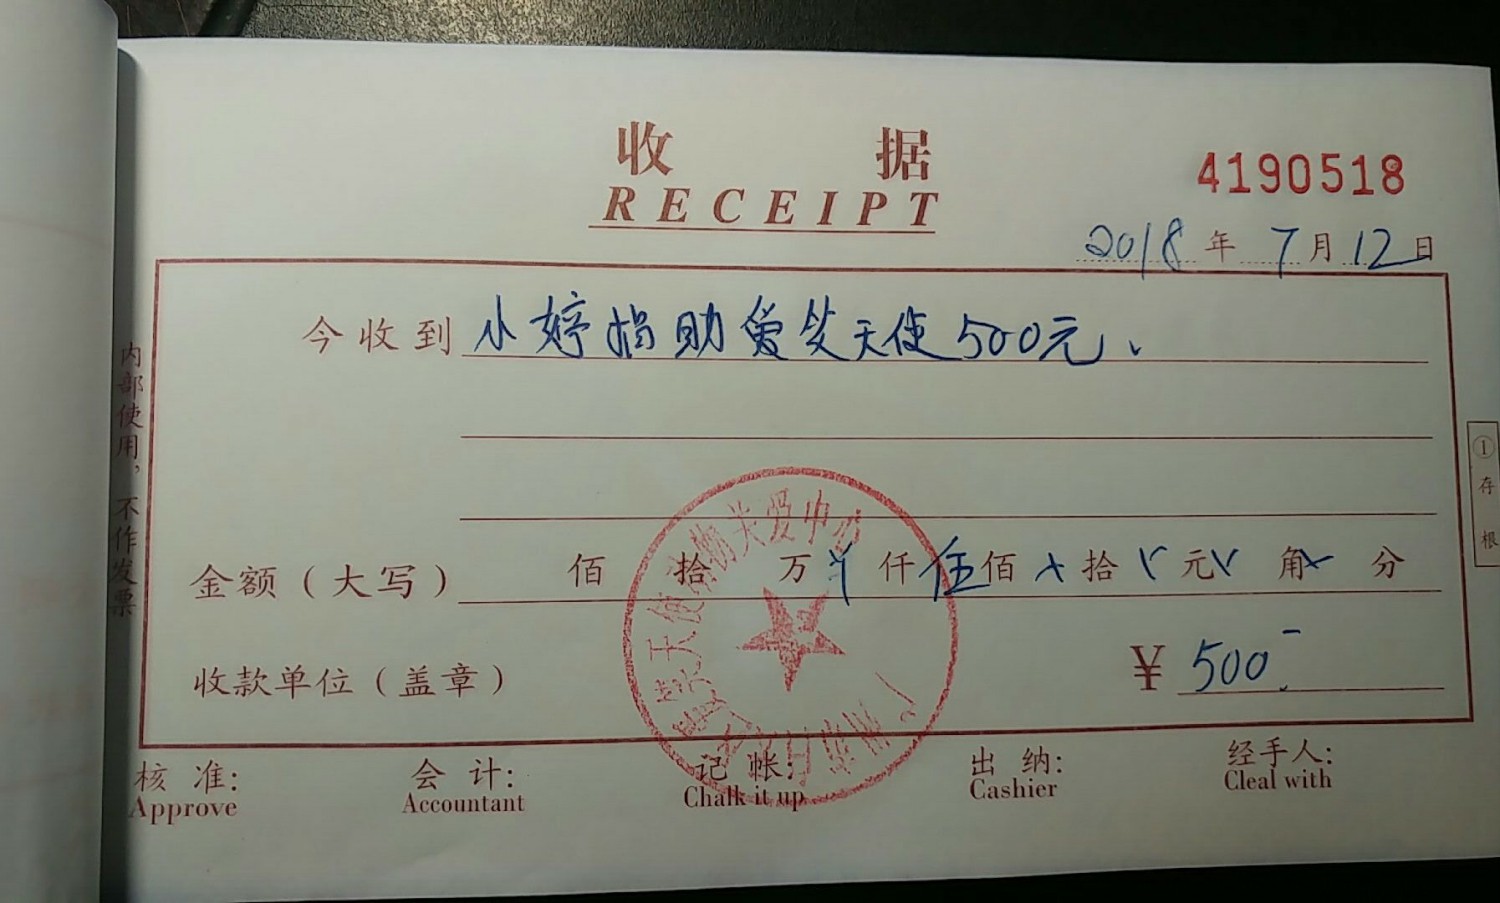 收据
RECEIPT
4190518
2018年7月12日
今收到 小婷捐助爱笑天使500元、
金额（大写） 佰 拾 万 仟伍佰 拾 元 角 分
收款单位（盖章）
¥ 500
核 准: 会 计: 记 帐: 出 纳: 经手人:
Approve Accountant Chalk it up Cashier Cleal with
内部使用，不作发票
①存根